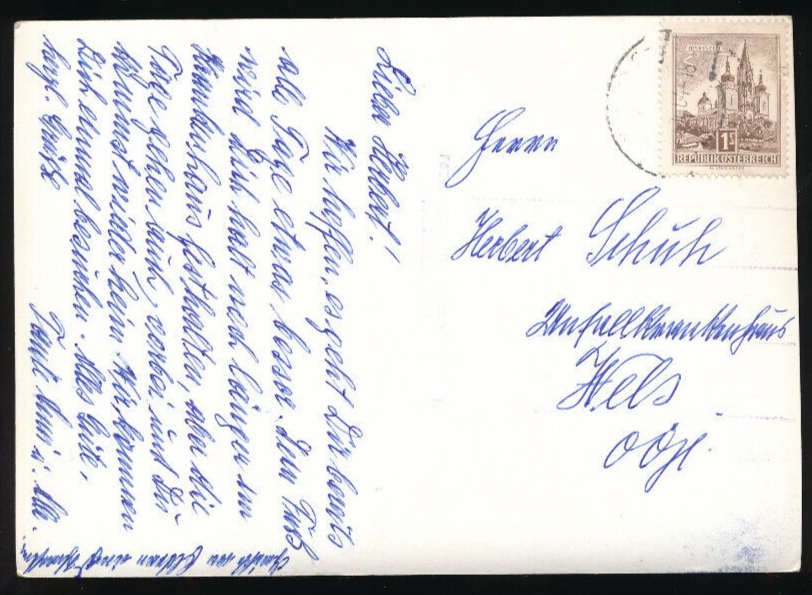 Liebe Herbert!
Wir hoffen, es geht Dir bereits
alle Tage etwas besser. Dein Fuß
wird Dich halt noch länger im
Krankenhaus festhalten, aber die
Tage gehen auch vorbei und Du
kommst wieder heim. Wir kommen
Dich einmal besuchen. Alles Gute,
herzl. Grüße
Tante Anni u. alle.
Grüße von Eltern und
Herrn
Herbert Schuh
Unfallkrankenhaus
Wels
OÖ.
MARIAZELL
1S
REPUBLIK ÖSTERREICH